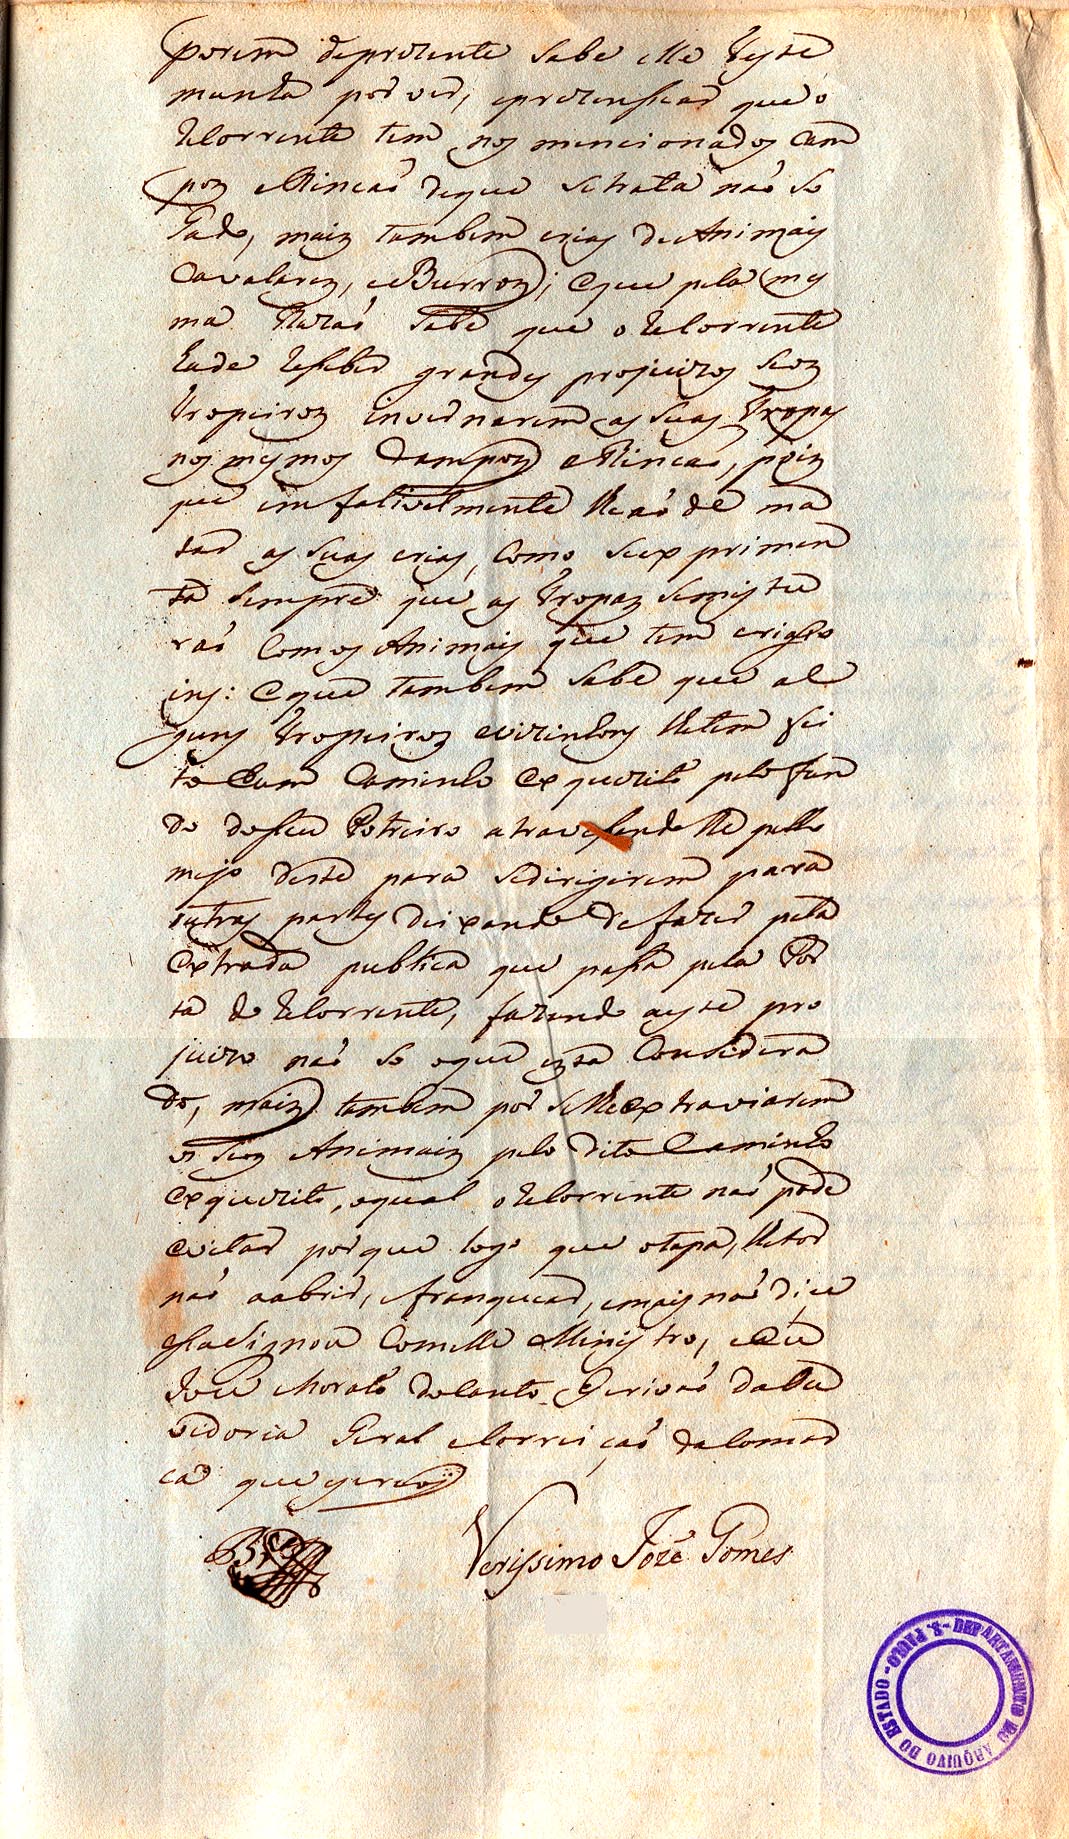 porem deprezente Sabe elle Teste
munha por ver, eprezensiar que o
Recorrente tem nos mencionados Cam
pos eRincaó deque Setrata naó So
Gado, mais tambem crias deAnimais
Cavalares, eBurros; eque pela mes
ma Razaó Sabe que oRecorrente
hade Resseber grandes projuizos Seos
Tropeiros invernarem as Suas Tropas
nos mesmos Campos eRincaó, pois
que imfalivelmente lheaóde ma
tar as Suas crias, Como Seexprimen
ta Sempre que as Tropas Semistu
raó Comos Animais que tem crias
: eque tambem Sabe que al
guns Tropeiros evizinhos lhetem fei
to hum Caminho exquezito pelo fun
do doSeu Potreiro atravessandolhe pello
mejo deste para Sedirigirem para
outras partes deixando defazer pela
extrada publica que passa pela Por
ta do Recorrente, fazendo aeste pro
juizo naó So oque esta Considera
do, mais tambem por Selheextraviarem
os Seos Animais pelo dito Caminho
exquezito, oqual oRecorrente naó pode
evitar porque logo que otapa, lhetor
naó aabrir, efranquear, emais naó dice
eSaSignou Comelle Ministro, eEu
Joze Morato doCanto Escrivaó daOu
vidoria Geral eCorreiçaó daComar
ca que escrevy
Verissimo Jozé Gomes
DEPARTAMENTO DO ARQUIVO DO ESTADO - S. PAULO -